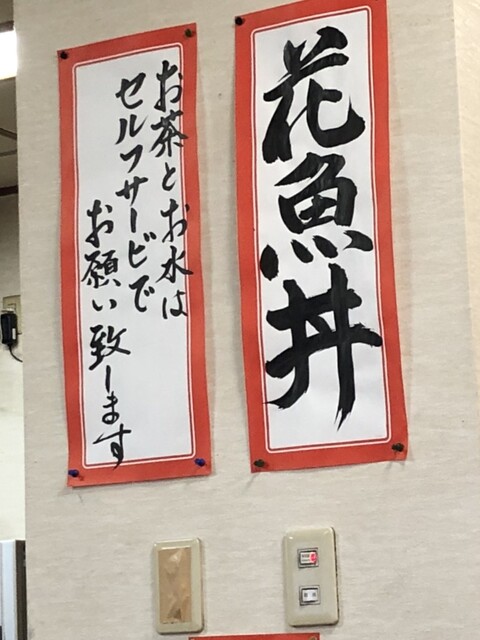 花魚丼
お茶とお水は
セルフサービで
お願い致します